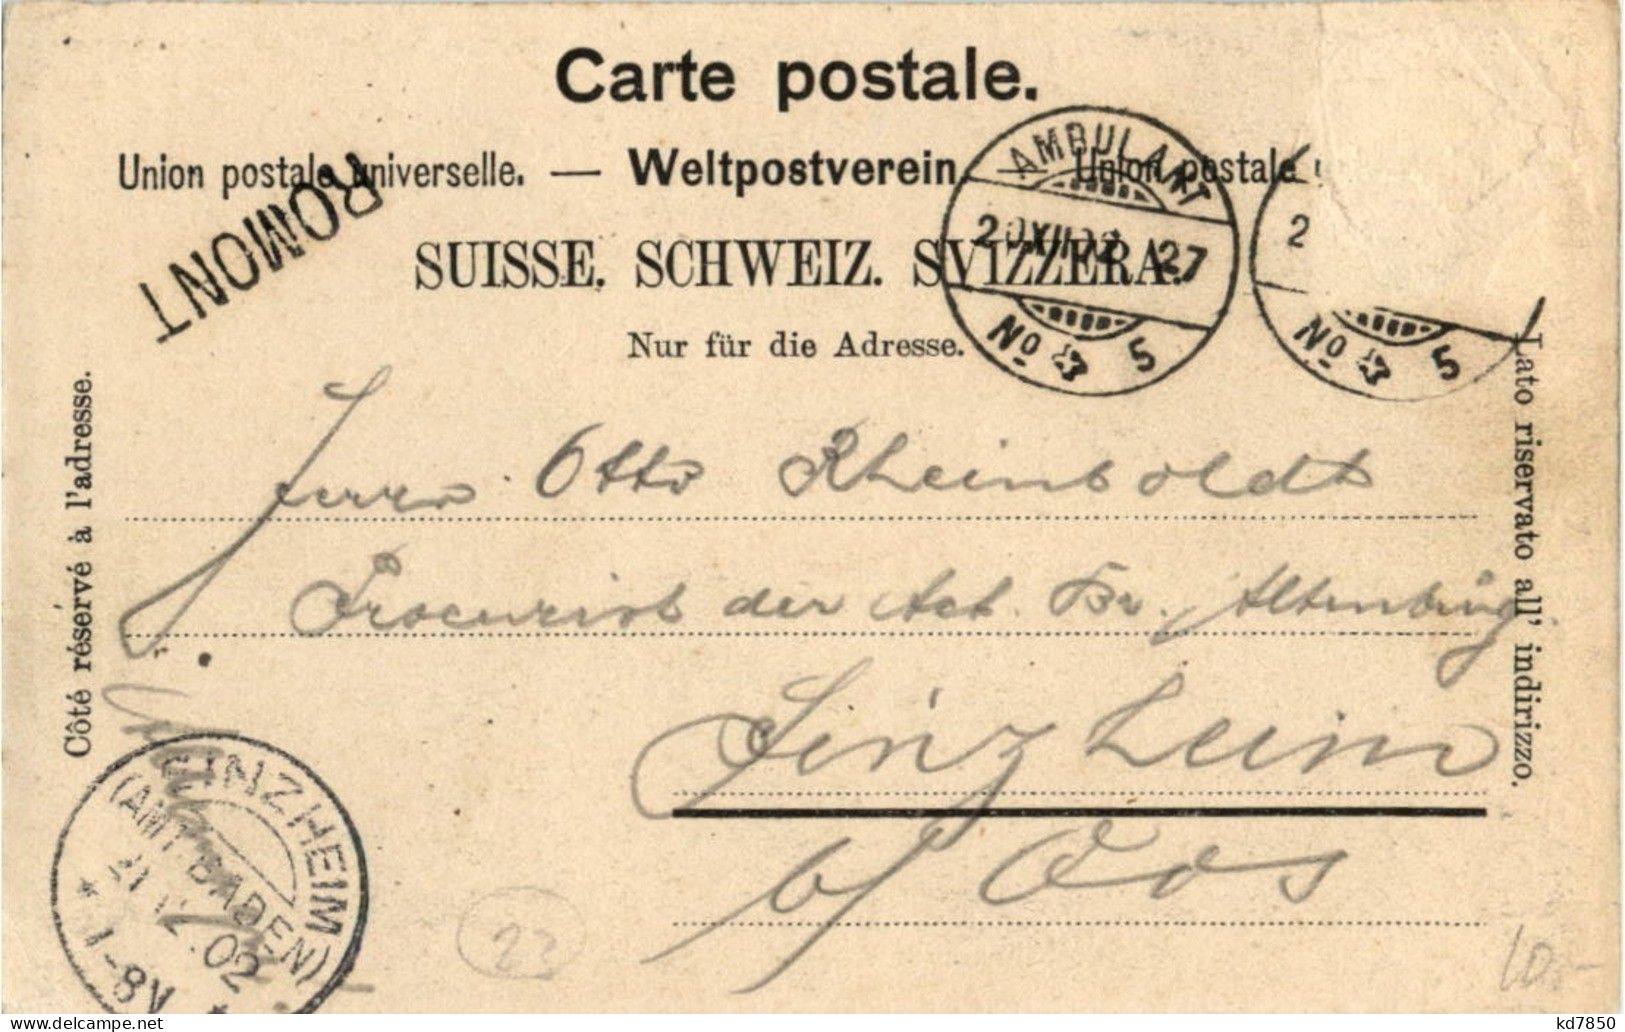 Carte postale.
Union postale universelle. — Weltpostverein. Union postale
SUISSE. SCHWEIZ. SVIZZERA.
Nur für die Adresse.
ROMONT
AMBULANT
20 XII 02 27
No 5
2
No 5
Côté résérvé à l'adresse.
Lato riservato all' indirizzo.
Herrn Otto Rheinboldt
Procurist der Act. Br. Altenburg
Sinzheim
b/ Oos
SINZHEIM
(AMT BADEN)
.02
1-8V
22
10.-
kd7850